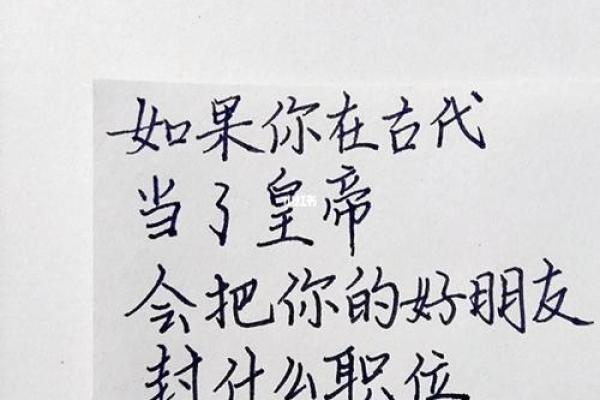 如果你在古代
当了皇帝
会把你的好朋友
封什么职位
小红书